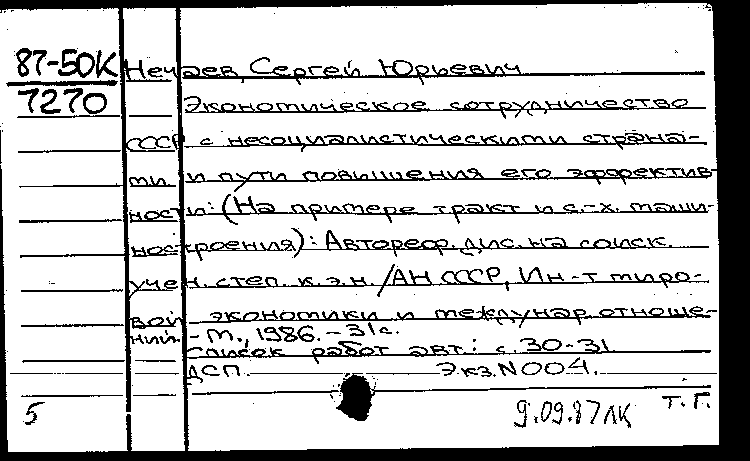 87-50К Нечаев, Сергей Юрьевич
7270 Экономическое сотрудничество
СССР с несоциалистическими страна-
ми и пути повышения его эффектив-
ности: (На примере тракт и с.-х. маши-
ностроения): Автореф. дис. на соиск.
учен. степ. к.э.н. /АН СССР, Ин-т миро-
вой экономики и междунар. отноше-
ний. - М., 1986. - 31с.
Список работ авт.: с. 30-31.
ДСП. Экз. N004.
5 9.09.87ЛК Т. Г.